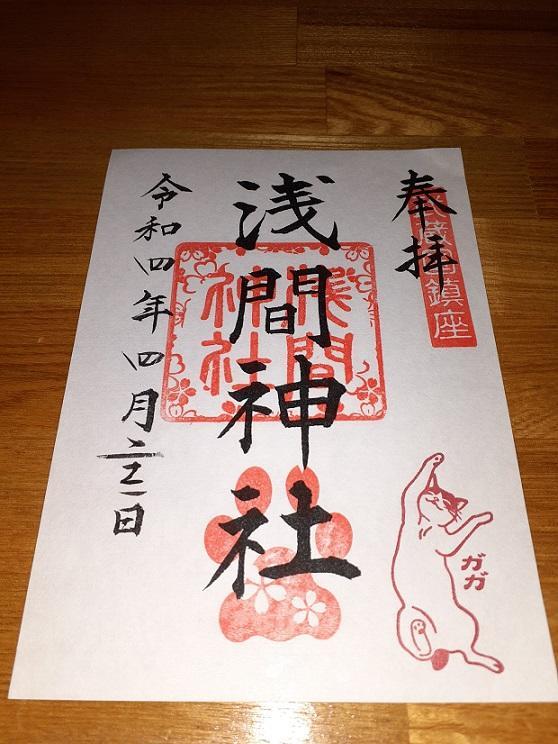 奉拝
武蔵国鎮座
浅間神社
浅間
神社
令和四年四月二十三日
ガガ